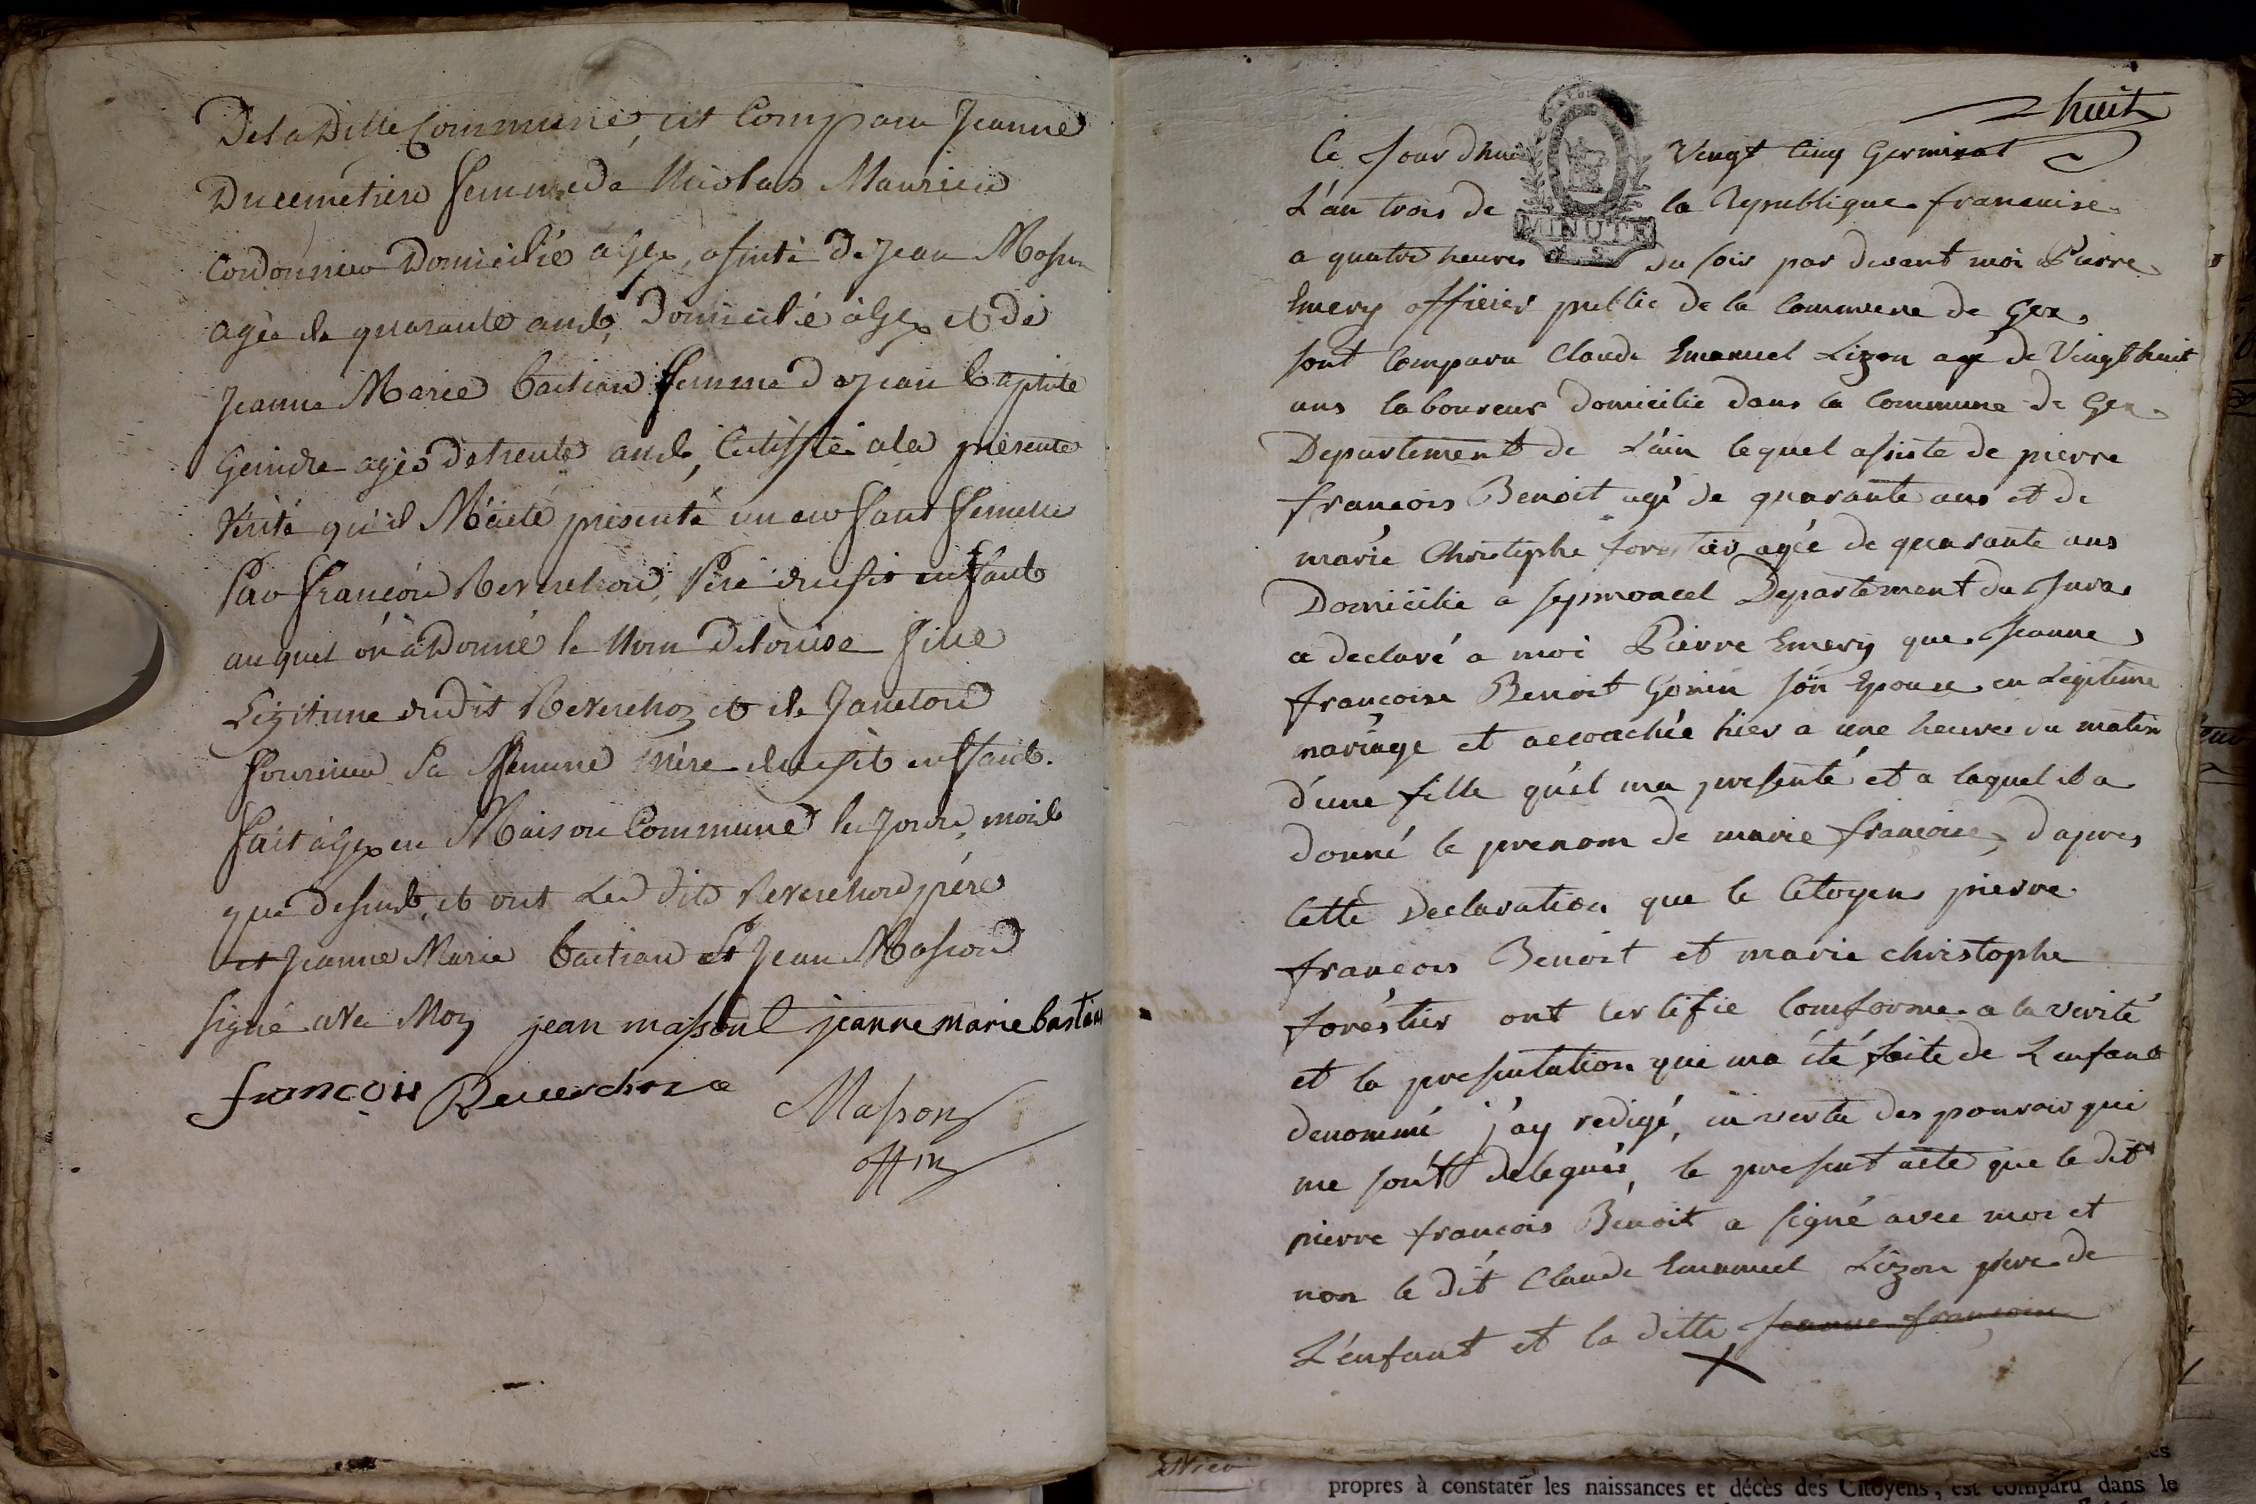 De la Ditte Commune, est Comparu Jeanne
Ducemetiere femme de Nicolas Maurice
Cordonnier Domicilié a Gex, assisté de Jean Masson
agée de quarante ans, Domicilié à Gex et de
Jeanne Marie bastian femme de Jean baptiste
Geindre agée de trente ans, a la présente
Verité qu'il M'a eté présenté un enfant femelle
Par François Reverchon, Pere dudit enfant
auquel on a Donné le Nom de Louise fille
Légitime dudit Reverchon et de Janeton
fournier Sa femme mère dudit enfant.
fait à Gex en Maison Commune les Jour, mois
que dessus, et ont Les dits Reverchon père
et Jeanne Marie bastian et Jean Masson
signé avec Moy jean masson jeanne marie bastian
françois Reverchon
Masson
offi
huit
Ce Jourdhui Vingt Cinq Germinal
L'an trois de la Republique francaise
MINUTE
a quatre heures du soir par devant moi Pierre
Emery officier public de la Commune de Gex,
sont Comparu Claude Emanuel Lizon agé de Vingt huit
ans laboureur domicilié dans la Commune de Gex
Departement de L'ain lequel asisté de pierre
françois Benoit agé de quarante ans et de
marie Christophe forestier agée de quarante ans
Domicilié a septmoncel Departement du Jura
a declaré a moi Pierre Emery que Jeanne
françoise Benoit Gonin son Epouse en Legitime
mariage et accouchée hier a une heures du matin
d'une fille qu'il ma presenté et a laquel il a
donné le prenom de marie françoise, d'apres
Cette Declaration que le Citoyen pierre
françois Benoit et marie christophe
foréstier ont certifie Comforme a la verité
et la presentation qui ma été faite de L'enfant
denommé j'ay redigé, en vertu des pouvoir qui
me sont delegués, le present acte que le dit
pierre françois Benoit a signé avec moi et
non le dit Claude Emanuel Lizon pere de
L'enfant et la ditte Jeanne françoise
propres à constater les naissances et décès des Citoyens, est comparu dans le